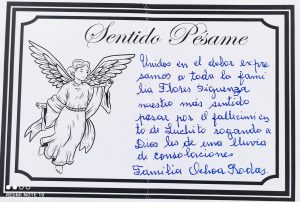 Sentido Pésame
Unidos en el dolor expre
samos a toda la fami
lia Flores Siguenza
nuestro más sentido
pesar por el fallecimien
to de Luchito rogando a
Dios les de una lluvia
de consolaciones.
Familia Ochoa Rodas.
REDMI NOTE 13